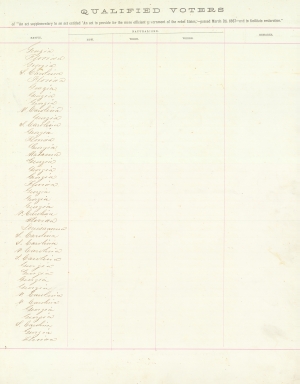 QUALIFIED VOTERS
of "An act supplementary to an act entitled 'An act to provide for the more efficient government of the rebel States,'—passed March 23, 1867—and to facilitate restoration."
NATURALIZED
NATIVITY. DATE. REMARKS.
Georgia
Florida
Georgia
S. Carolina
Florida
Georgia
Georgia
Georgia
S. Carolina
Georgia
S. Carolina
Georgia
Florida
Georgia
Alabama
Georgia
Georgia
Georgia
Florida
Georgia
Georgia
Georgia
S. Carolina
Florida
S. Carolina
S. Carolina
S. Carolina
S. Carolina
Georgia
Georgia
Georgia
Georgia
N. Carolina
S. Carolina
Georgia
Georgia
S. Carolina
Georgia
Florida